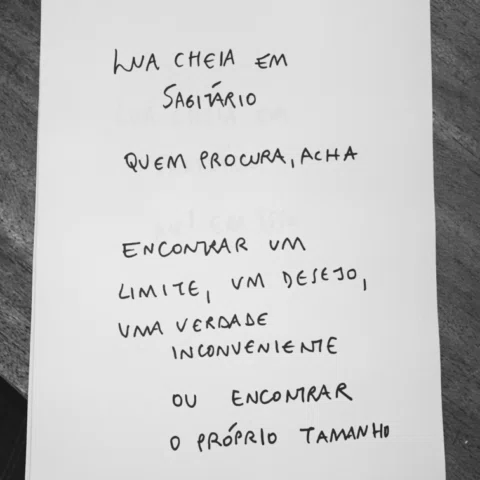 LUA CHEIA EM
SAGITÁRIO
QUEM PROCURA, ACHA
ENCONTRAR UM
LIMITE, UM DESEJO,
UMA VERDADE
INCONVENIENTE
OU ENCONTRAR
O PRÓPRIO TAMANHO